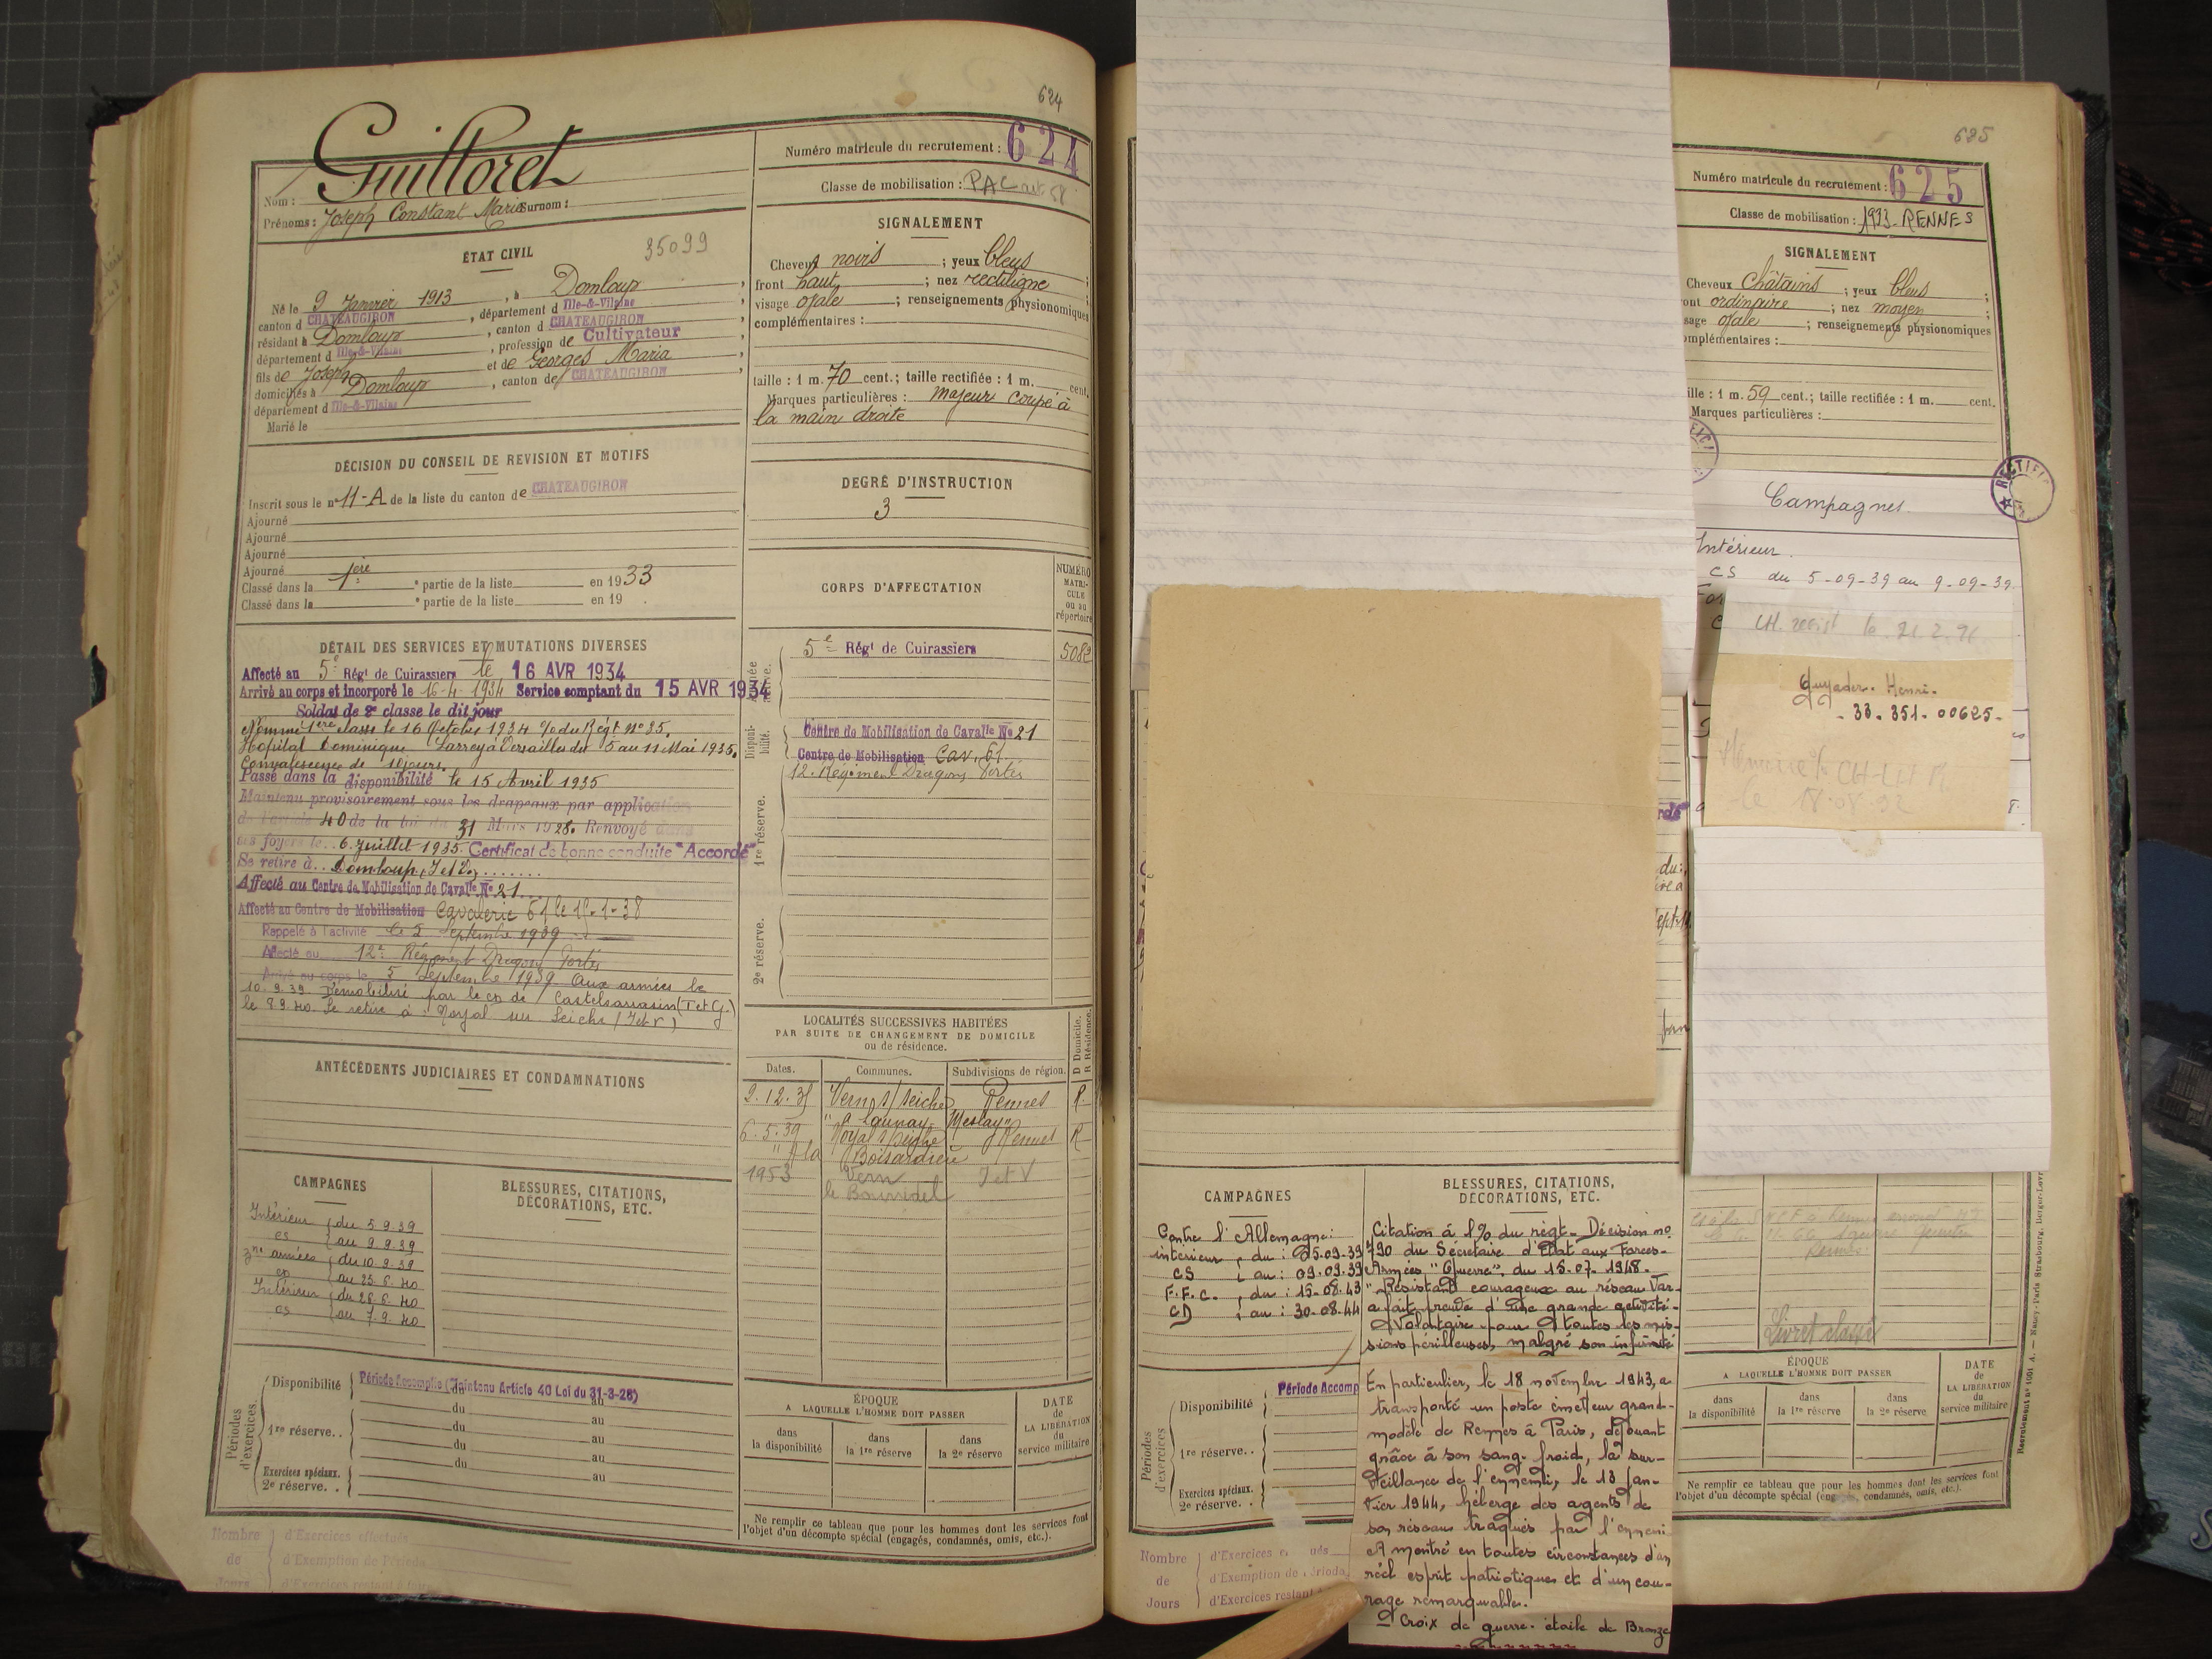 624
Guilloret
Nom :
Prénoms : Joseph Constant Marie Surnom :
ÉTAT CIVIL
35099
Né le 9 Janvier 1913, à Domloup,
canton d CHATEAUGIRON, département d Ille-&-Vilaine,
résidant à Domloup, canton d CHATEAUGIRON,
département d Ille-&-Vilaine, profession de Cultivateur
fils de Joseph et de Georges Maria,
domiciliés à Domloup, canton de CHATEAUGIRON,
département d Ille-&-Vilaine
Marié le
DÉCISION DU CONSEIL DE REVISION ET MOTIFS
Inscrit sous le n° 11-A de la liste du canton de CHATEAUGIRON
Ajourné
Ajourné
Ajourné
Ajourné
Classé dans la 1ère e partie de la liste en 1933
Classé dans la e partie de la liste en 19 .
DÉTAIL DES SERVICES ET MUTATIONS DIVERSES
Affecté au 5e Régt de Cuirassiers le 16 AVR 1934
Arrivé au corps et incorporé le 16-4-1934 Service comptant du 15 AVR 1934
Soldat de 2e classe le dit jour
Nommé 1ère classe le 16 Octobre 1934 % du Régt N° 85.
Hopital Dominique Larrey à Versailles du 5 au 11 Mai 1935.
Convalescence de jours.
Passé dans la disponibilité le 15 Avril 1935
Maintenu provisoirement sous les drapeaux par application
de l'article 40 de la loi du 31 Mars 1928. Renvoyé dans
ses foyers le .. 6. Juillet 1935. Certificat de bonne conduite "Accordé"
Se retire à .. Domloup, I et V. .......
Affecté au Centre de Mobilisation de Cavalie N° 21
Affecté au Centre de Mobilisation Cavalerie 61 le 15-1-38
Rappelé à l'activité le 5 Septembre 1939
Affecté au 12e Régiment Dragons Portés
Arrivé au corps le 5 Septembre 1939. Aux armées le
10.9.39. Démobilisé par le CD de Castelsarrasin (T et G.)
le 8 9.40. Se retire à : Noyal sur Seiche (I et V)
ANTÉCÉDENTS JUDICIAIRES ET CONDAMNATIONS
CAMPAGNES
Intérieur { du 5.9.39
CS { au 9 9.39
Zne armées { du 10.9.39
CD { au 25.6.40
Intérieur { du 26.6.40
CS { au 7.9.40
BLESSURES, CITATIONS,
DÉCORATIONS, ETC.
Périodes d'exercices.
Disponibilité Période Accomplie (Maintenu Article 40 Loi du 31-3-28)
du au
1re réserve. . du au
du au
du au
Exercices spéciaux.
2e réserve. . du au
Nombre d'Exercices effectués
de d'Exemption de Période
Jours d'Exercices restant à
Numéro matricule du recrutement : 624
Classe de mobilisation : PAC
SIGNALEMENT
Cheveux noirs ; yeux bleus ;
front haut ; nez rectiligne ;
visage ovale ; renseignements physionomiques
complémentaires :
taille : 1 m. 70 cent.; taille rectifiée : 1 m. cent.
Marques particulières : majeur coupé à
la main droite
DEGRÉ D'INSTRUCTION
3
CORPS D'AFFECTATION
NUMÉRO
MATRI-
CULE
ou au
répertoire
Armée active.
5e Régt de Cuirassiers 5082
Disponibilité.
Centre de Mobilisation de Cavalie N° 21
Centre de Mobilisation Cav. 61
12e Régiment Dragons Portés
1re réserve.
2e réserve.
LOCALITÉS SUCCESSIVES HABITÉES
PAR SUITE DE CHANGEMENT DE DOMICILE
ou de résidence.
D Domicile.
R Résidence.
Dates. Communes. Subdivisions de région.
2.12.35 Vern s/ Seiche Rennes R.
" à Launay Meslay"
6.5.39 Noyal s/ Seiche Rennes R
" A la Boisardière
1953 Vern I et V
ÉPOQUE
A LAQUELLE L'HOMME DOIT PASSER
DATE
de
LA LIBÉRATION
du
service militaire
dans
la disponibilité
dans
la 1re réserve
dans
la 2e réserve
Ne remplir ce tableau que pour les hommes dont les services font
l'objet d'un décompte spécial (engagés, condamnés, omis, etc.).
625
Numéro matricule du recrutement : 625
Classe de mobilisation : 1933 - RENNES
SIGNALEMENT
Cheveux Châtains ; yeux bleus ;
ont ordinaire ; nez moyen ;
sage ovale ; renseignements physionomiques
omplémentaires :
ille : 1 m. 59 cent.; taille rectifiée : 1 m. cent.
Marques particulières :
RECTIFI
Campagnes.
Intérieur.
CS du 5-09-39 au 9-09-39.
Guyader. Henri.
- 33. 351. 00625 -
le 18.08.92
CAMPAGNES
Contre l'Allemagne :
intérieur { du : 05.09.39
CS { au : 09.09.39
F.F.C. { du : 15-08.43
CD { au : 30.08.44
BLESSURES, CITATIONS,
DÉCORATIONS, ETC.
Citation à l'% du règt - Décision n°
790 du Sécrétaire d'Etat aux Forces-
Armées "Guerre". du 15-07. 1948 -
"Résistant courageux au réseau Var-
a fait preuve d'une grande activité -
Volontaire pour toutes les mis-
sions périlleuses, malgré son infirmité
En particulier, le 18 novembre 1943, a
transporté un poste émetteur grand-
modèle de Rennes à Paris, déjouant
grâce à son sang-froid, la sur-
veillance de l'ennemi, le 13 Jan-
vier 1944, héberge des agents de
son réseau traqués par l'ennemi
A montré en toutes circonstances d'un
réel esprit patriotique et d'un cou-
rage remarquable.
Croix de guerre. étoile de Bronze
Périodes d'exercices
Disponibilité Période Accomp
1re réserve. .
Exercices spéciaux.
2e réserve. .
Nombre d'Exercices
de d'Exemption de
Jours d'Exercices restant
Livret classé
ÉPOQUE
A LAQUELLE L'HOMME DOIT PASSER
DATE
de
LA LIBÉRATION
du
service militaire
dans
la disponibilité
dans
la 1re réserve
dans
la 2e réserve
Ne remplir ce tableau que pour les hommes dont les services font
l'objet d'un décompte spécial (engagés, condamnés, omis, etc.).